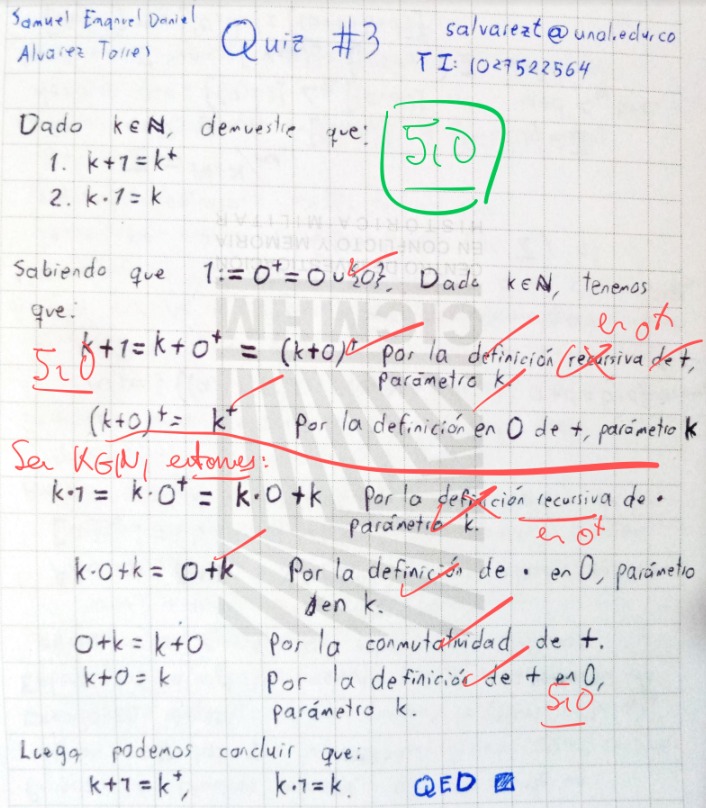 Samuel Emanuel Daniel
Alvarez Torres
Quiz #3
salvarezt@unal.edu.co
TI: 1027522564
Dado k∈ℕ, demuestre que:
1. k+1=k⁺
2. k·1=k
5,0
HISTORICA MILITAR
EN CONFLICTO Y MEMORIA
CENTRO DE INVESTIGACIÓN
CICMHM
Sabiendo que 1:=0⁺=0∪{0}. Dado k∈ℕ, tenemos
que:
en 0⁺
k+1=k+0⁺ = (k+0)⁺ Por la definición recursiva de +,
parámetro k.
5,0
(k+0)⁺= k⁺ Por la definición en 0 de +, parámetro k
Sea K∈ℕ, entonces:
k·1= k·0⁺= k·0+k Por la definición recursiva de ·
parámetro k.
en 0⁺
k·0+k= 0+k Por la definición de · en 0, parámetro
en k.
0+k=k+0 Por la conmutatividad de +.
k+0=k Por la definición de + en 0,
parámetro k.
5,0
Luego podemos concluir que:
k+1=k⁺, k·1=k. QED